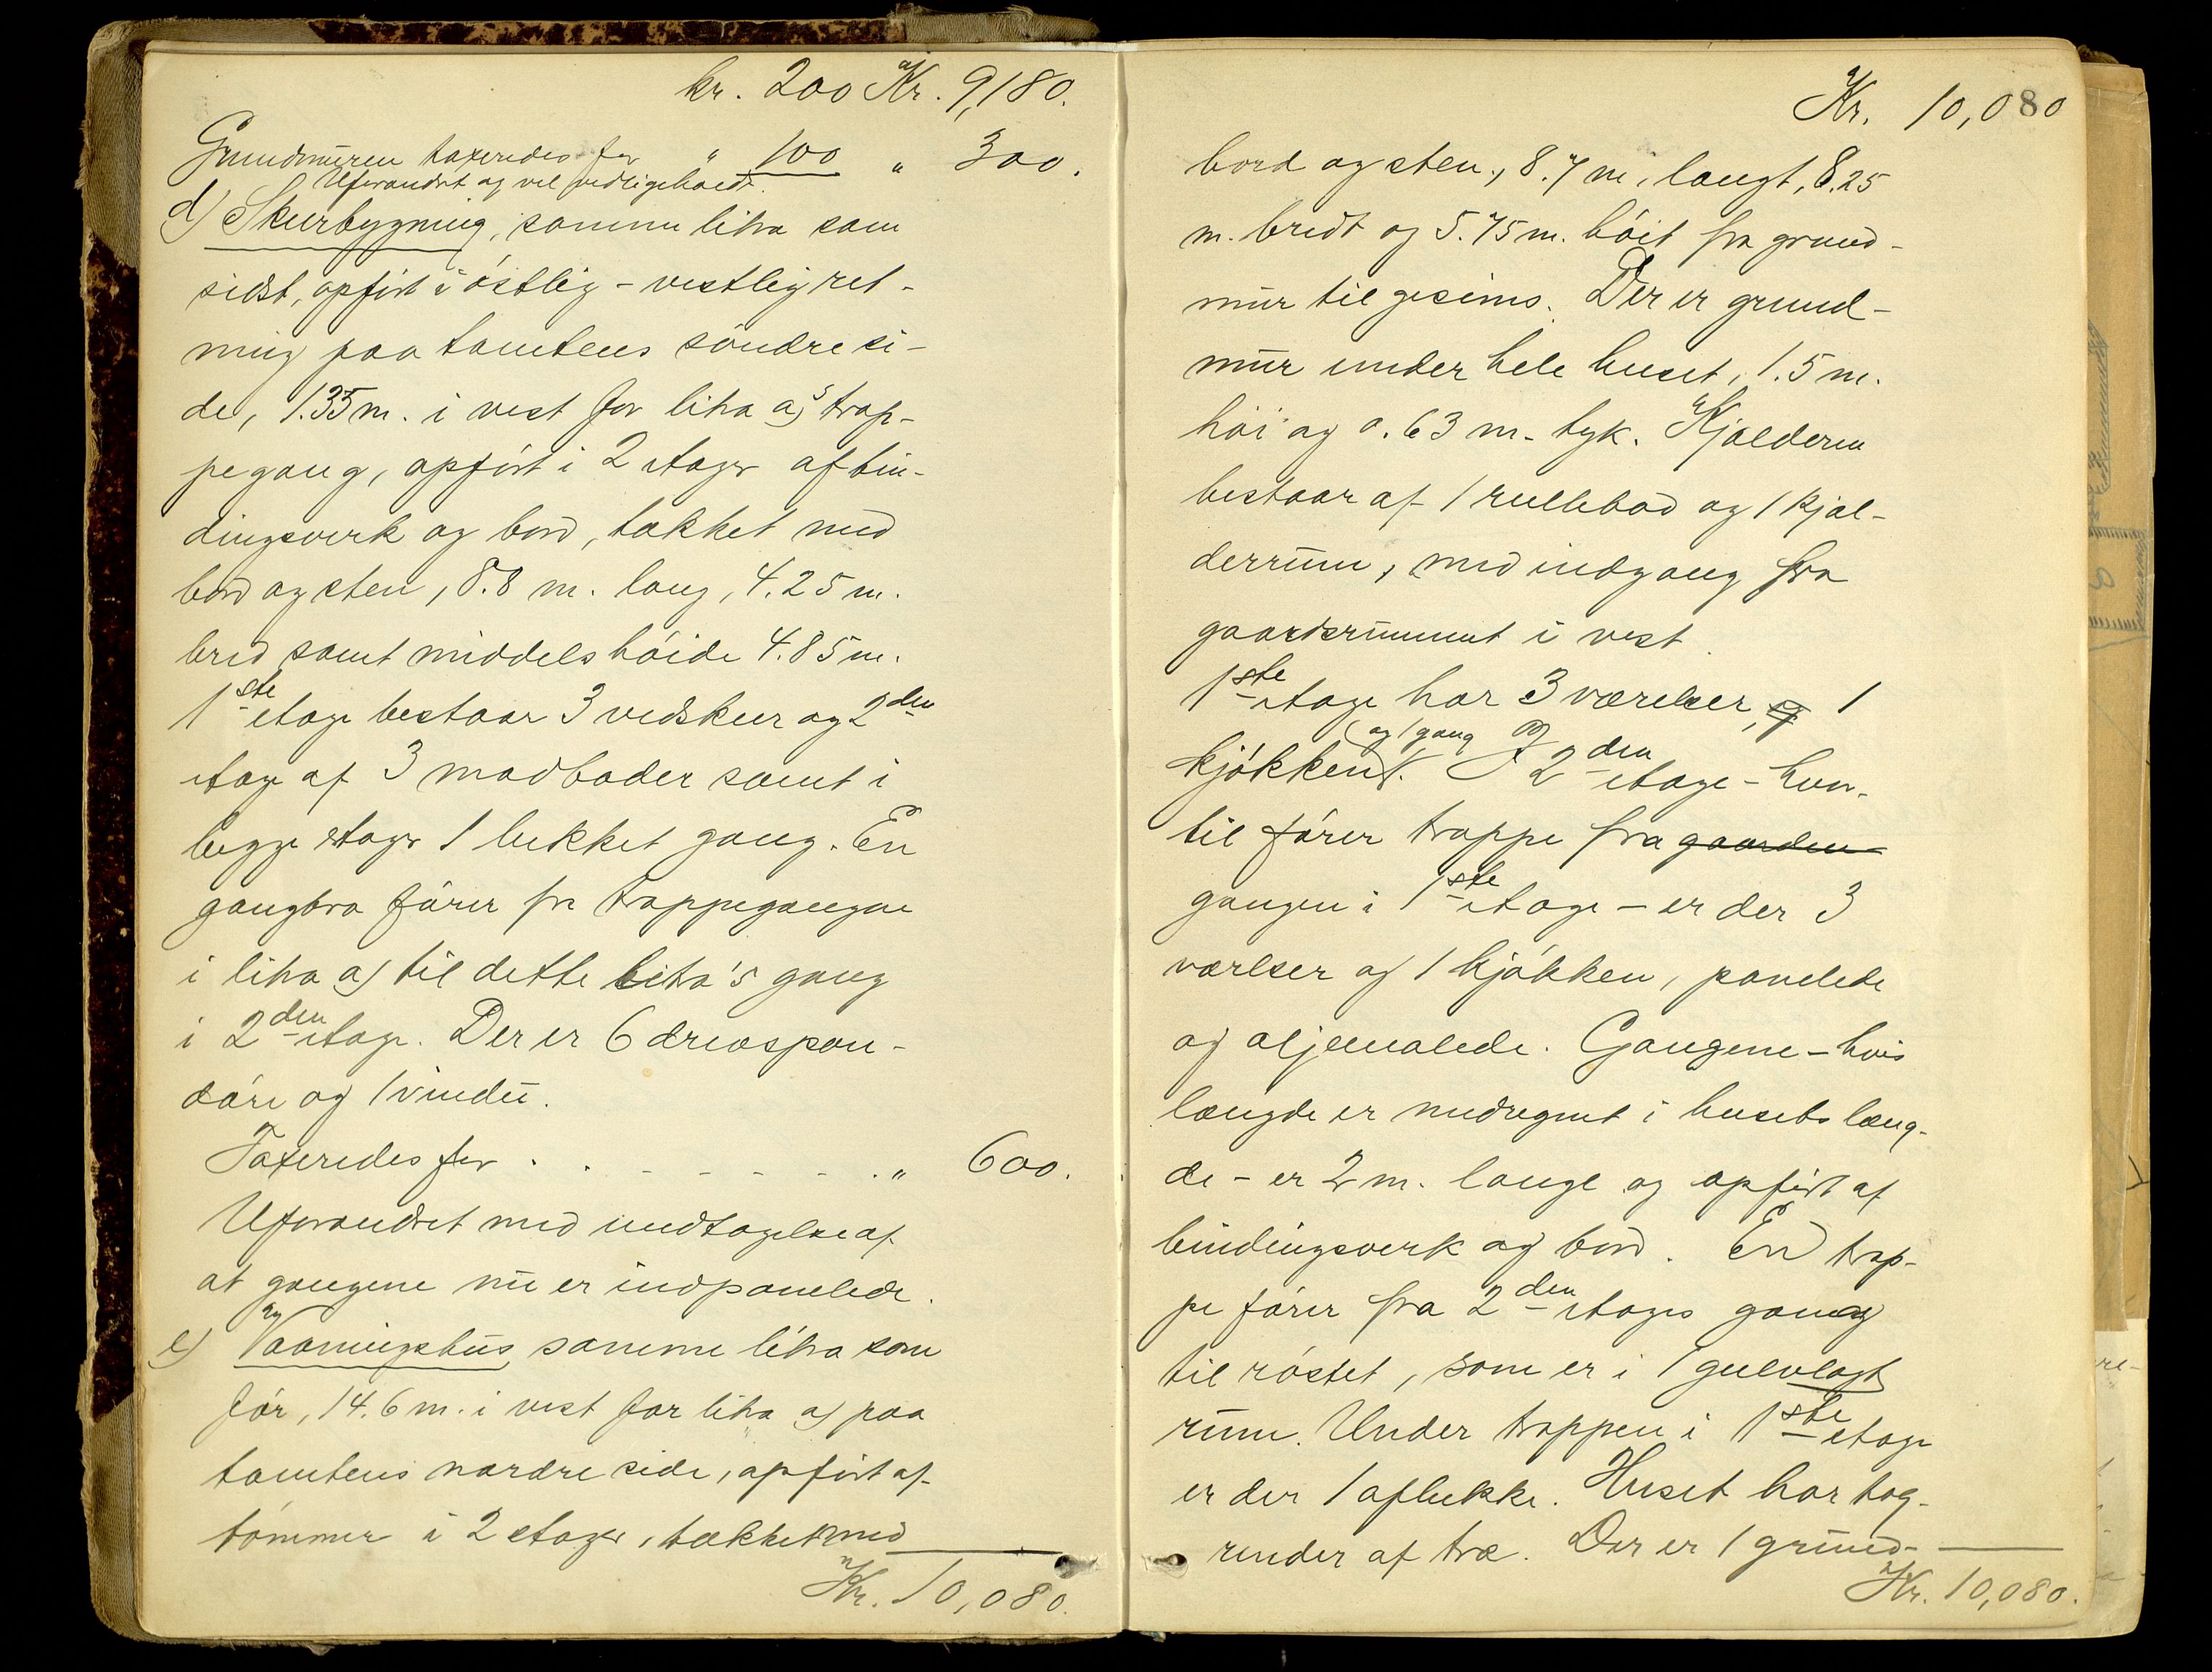 kr. 200 Kr. 9,180.
Grundmuren taxeredes for " 100 " 300.
Uforandret og vel vedligeholdt.
d) Skurbygning, samme litra som
sidst, opført i østlig - vestlig ret-
ning paa tomtens søndre si-
de, 1.35 m. i vest for litra a)s trap-
pegang, opført i 2 etager af bin-
dingsverk og bord, tækket med
bord og sten, 8.8 m. lang, 4.25 m.
bred samt middelshøide 4.85 m.
1ste etage bestaar 3 vedskur og 2den
etage af 3 madboder samt i
begge etager 1 lukket gang. En
gangbro fører fra trappegangene
i litra a) til dette litra's gang
i 2den etage. Der er 6 drevspon-
døre og 1 vindu.
Taxeredes for . . - - - - - . " 600.
Uforandret med undtagelse af
at gangene nu er indpanelede.
e) Vaaningshus samme litra som
før, 14.6 m. i vest for litra a) paa
tomtens nordre side, opført af
tømmer i 2 etager, tækket med
Kr. 10,080.
Kr. 10,080
bord og sten, 8.7 m. langt, 8.25
m. bredt og 5.75 m. høit fra grund-
mur til gesims. Der er grund-
mur under hele huset, 1.5 m.
høi og 0.63 m. tyk. Kjælderen
bestaar af 1 rullebod og 1 kjæl-
derrum, med indgang fra
gaardsrummet i vest.
1ste etage har 3 værelser, og 1
kjøkken og 1 gang. I 2den etage - hvor-
til fører trappe fra gaarden
gangen i 1ste etage - er der 3
værelser og 1 kjøkken, panelede
og oljemalede. Gangene - hvis
længde er medregnet i husets læng-
de - er 2 m. lange og opført af
bindingsverk og bord. En trap-
pe fører fra 2den etages gang
til røstet, som er i 1 gulvlagt
rum. Under trappen i 1ste etage
er der 1 aflukke. Huset har tag-
render af træ. Der er 1 grund-
Kr. 10,080.